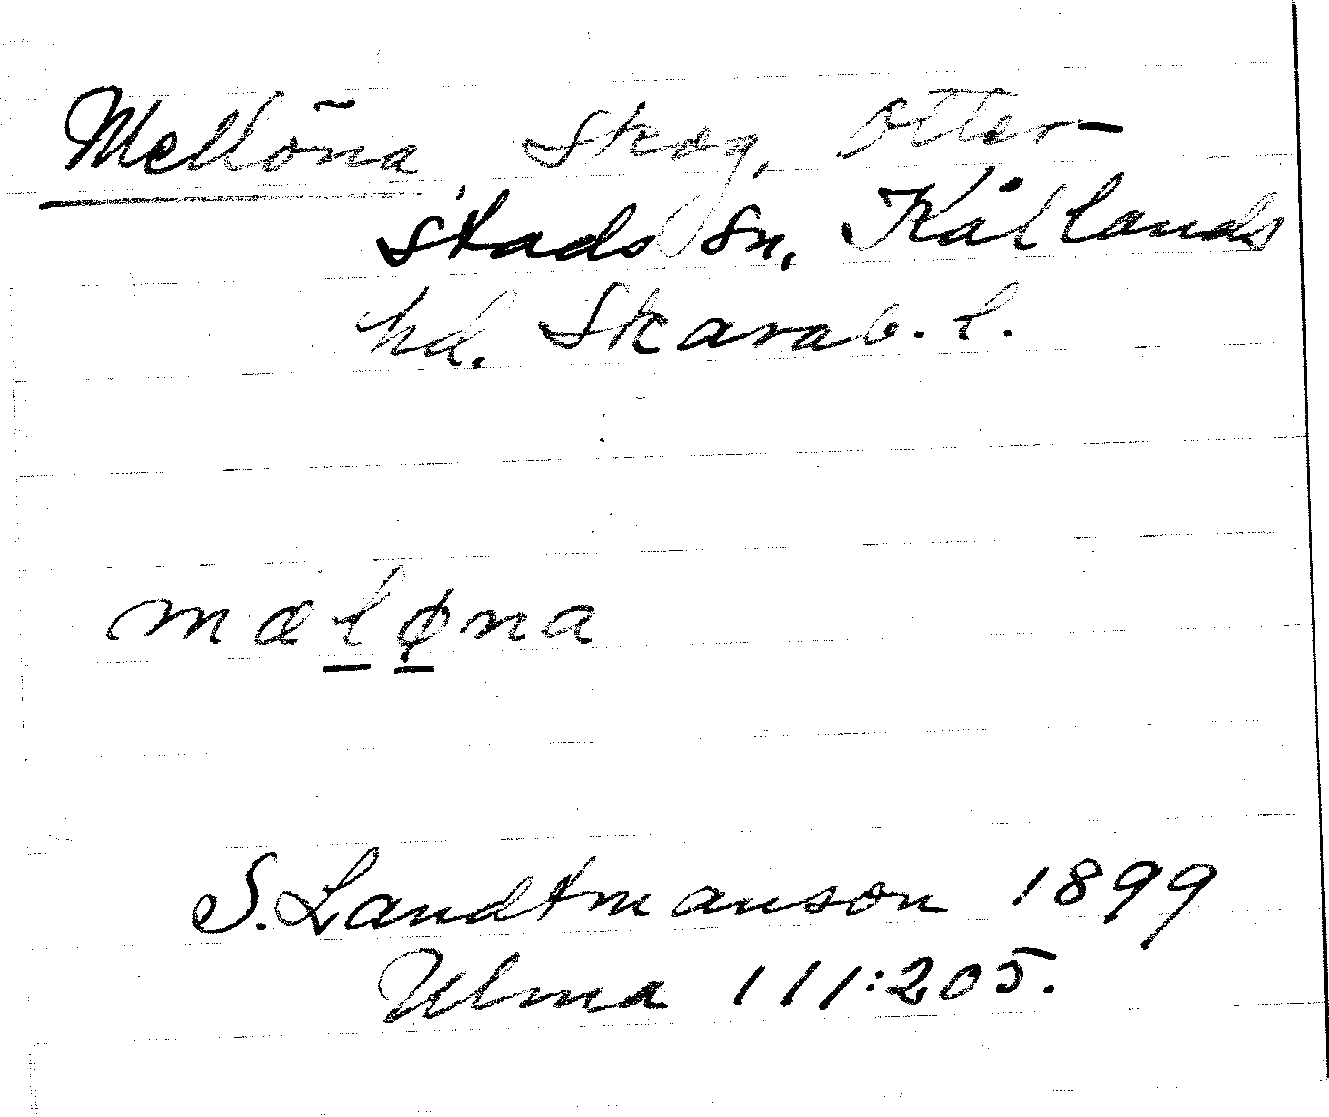 Mellöna skog, Otter-
stads sn, Kållands
hd. Skarab. l.
mæl̲ø̲na
S. Landtmanson 1899
Ulma 111:205.